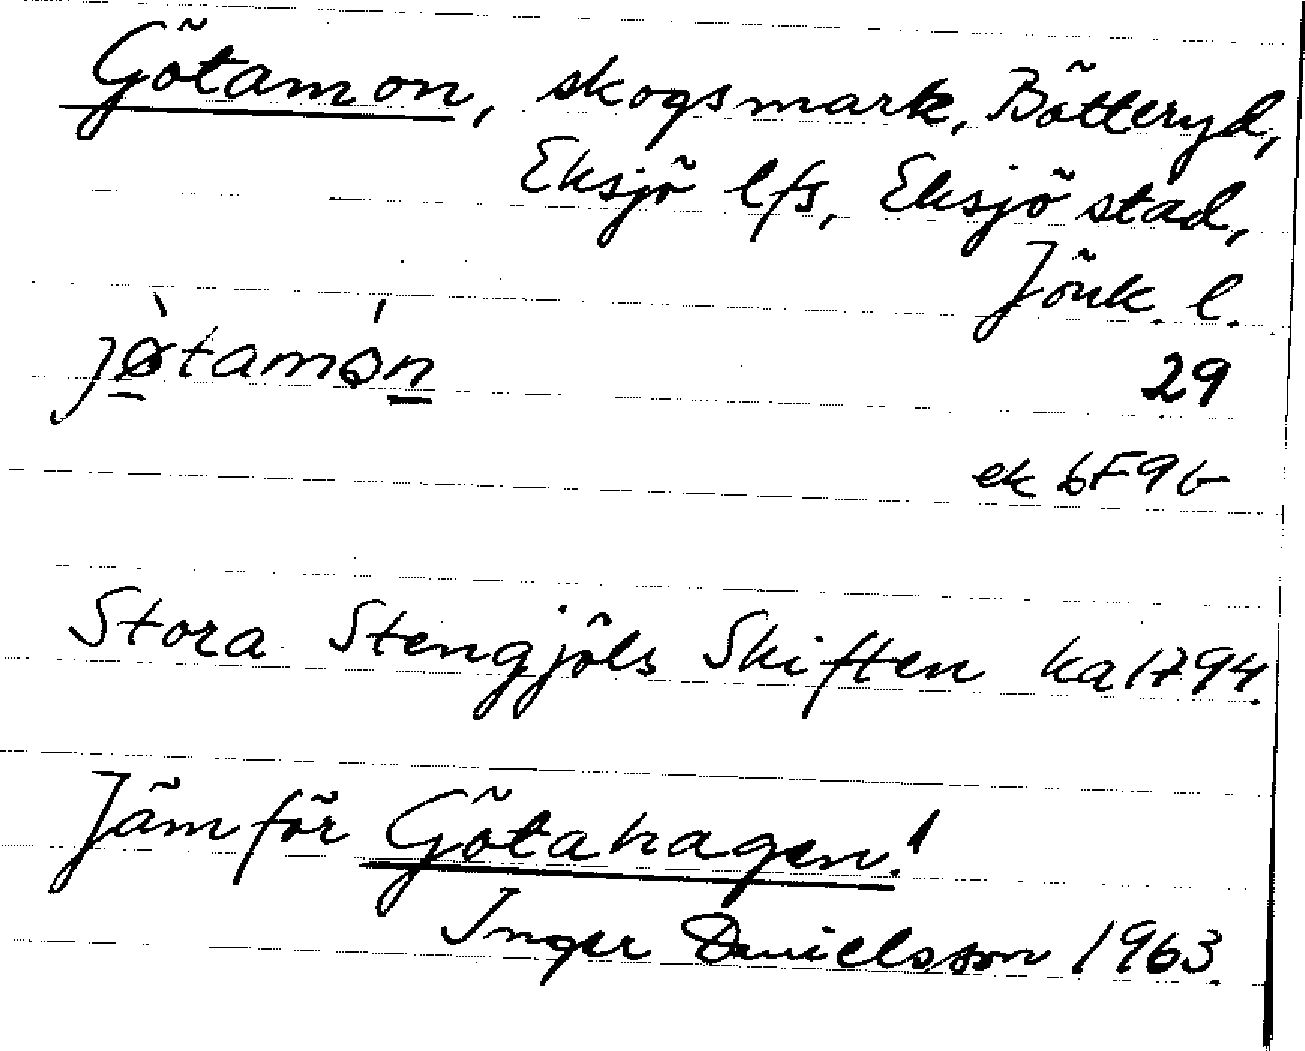 Götamon, skogsmark, Bötteryd,
Eksjö lfs, Eksjö stad,
Jönk. l.
jø̀tamón
29
ek 6F9b
Stora Stengjöls Skiften ka 1794.
Jämför Götahagen!
Inger Danielsson 1963.